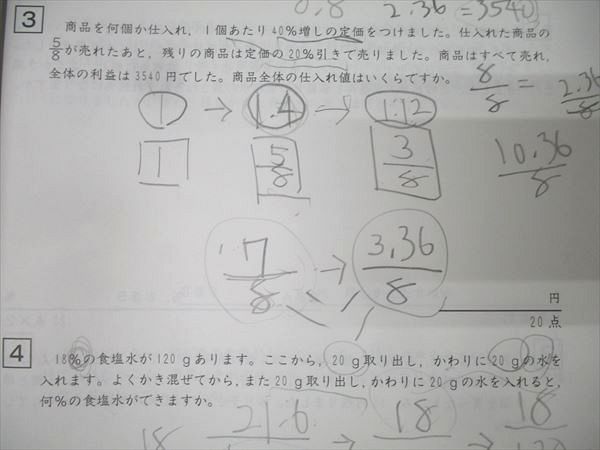 0.8 2.36=3540
3
商品を何個か仕入れ，1個あたり40%増しの定価をつけました。仕入れた商品の
5/8が売れたあと，残りの商品は定価の20%引きで売りました。商品はすべて売れ，
全体の利益は3540円でした。商品全体の仕入れ値はいくらですか。
8/8 = 2.36/8
1 → 1.4 → 1.12
1 5/8 3/8 10.36/8
7/8 → 3.36/8
円
20点
4
18%の食塩水が120gあります。ここから，20g取り出し，かわりに20gの水を
入れます。よくかき混ぜてから，また20g取り出し，かわりに20gの水を入れると，
何%の食塩水ができますか。
18 21.6 → 18 → 18